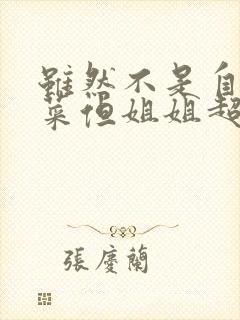 雖然不是自
菜但姐姐超
張慶蘭